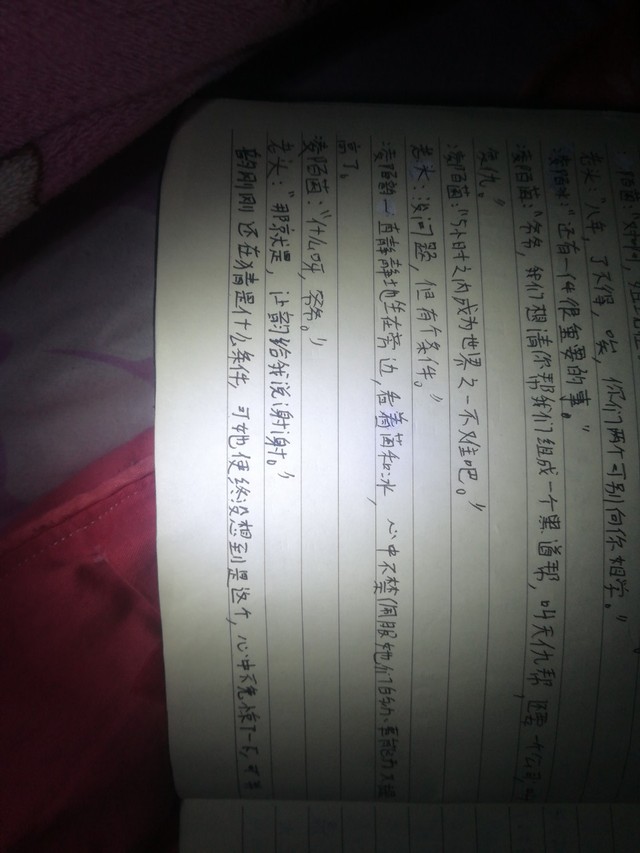 老头：“八年，了不得，哈，你们两个可别向你姐学。”
“还有一件很重要的事。”
凌陌茵：“爷爷，我们想请你帮我们组成一个黑道帮，叫天仇帮，还要一个公司，
复仇。”
凌陌茵：“5小时之内成为世界之一不难吧。”
老头：没问题，但有个条件。”
凌陌韵一直静静地坐在旁边，看着茵和冰，心中不禁佩服她们的办事能力又提
高了。
凌陌茵：“什么呀，爷爷。”
老头：“那就是，让韵给我说谢谢。”
韵刚刚还在猜是什么条件，可她使终没想到是这个，心中不免